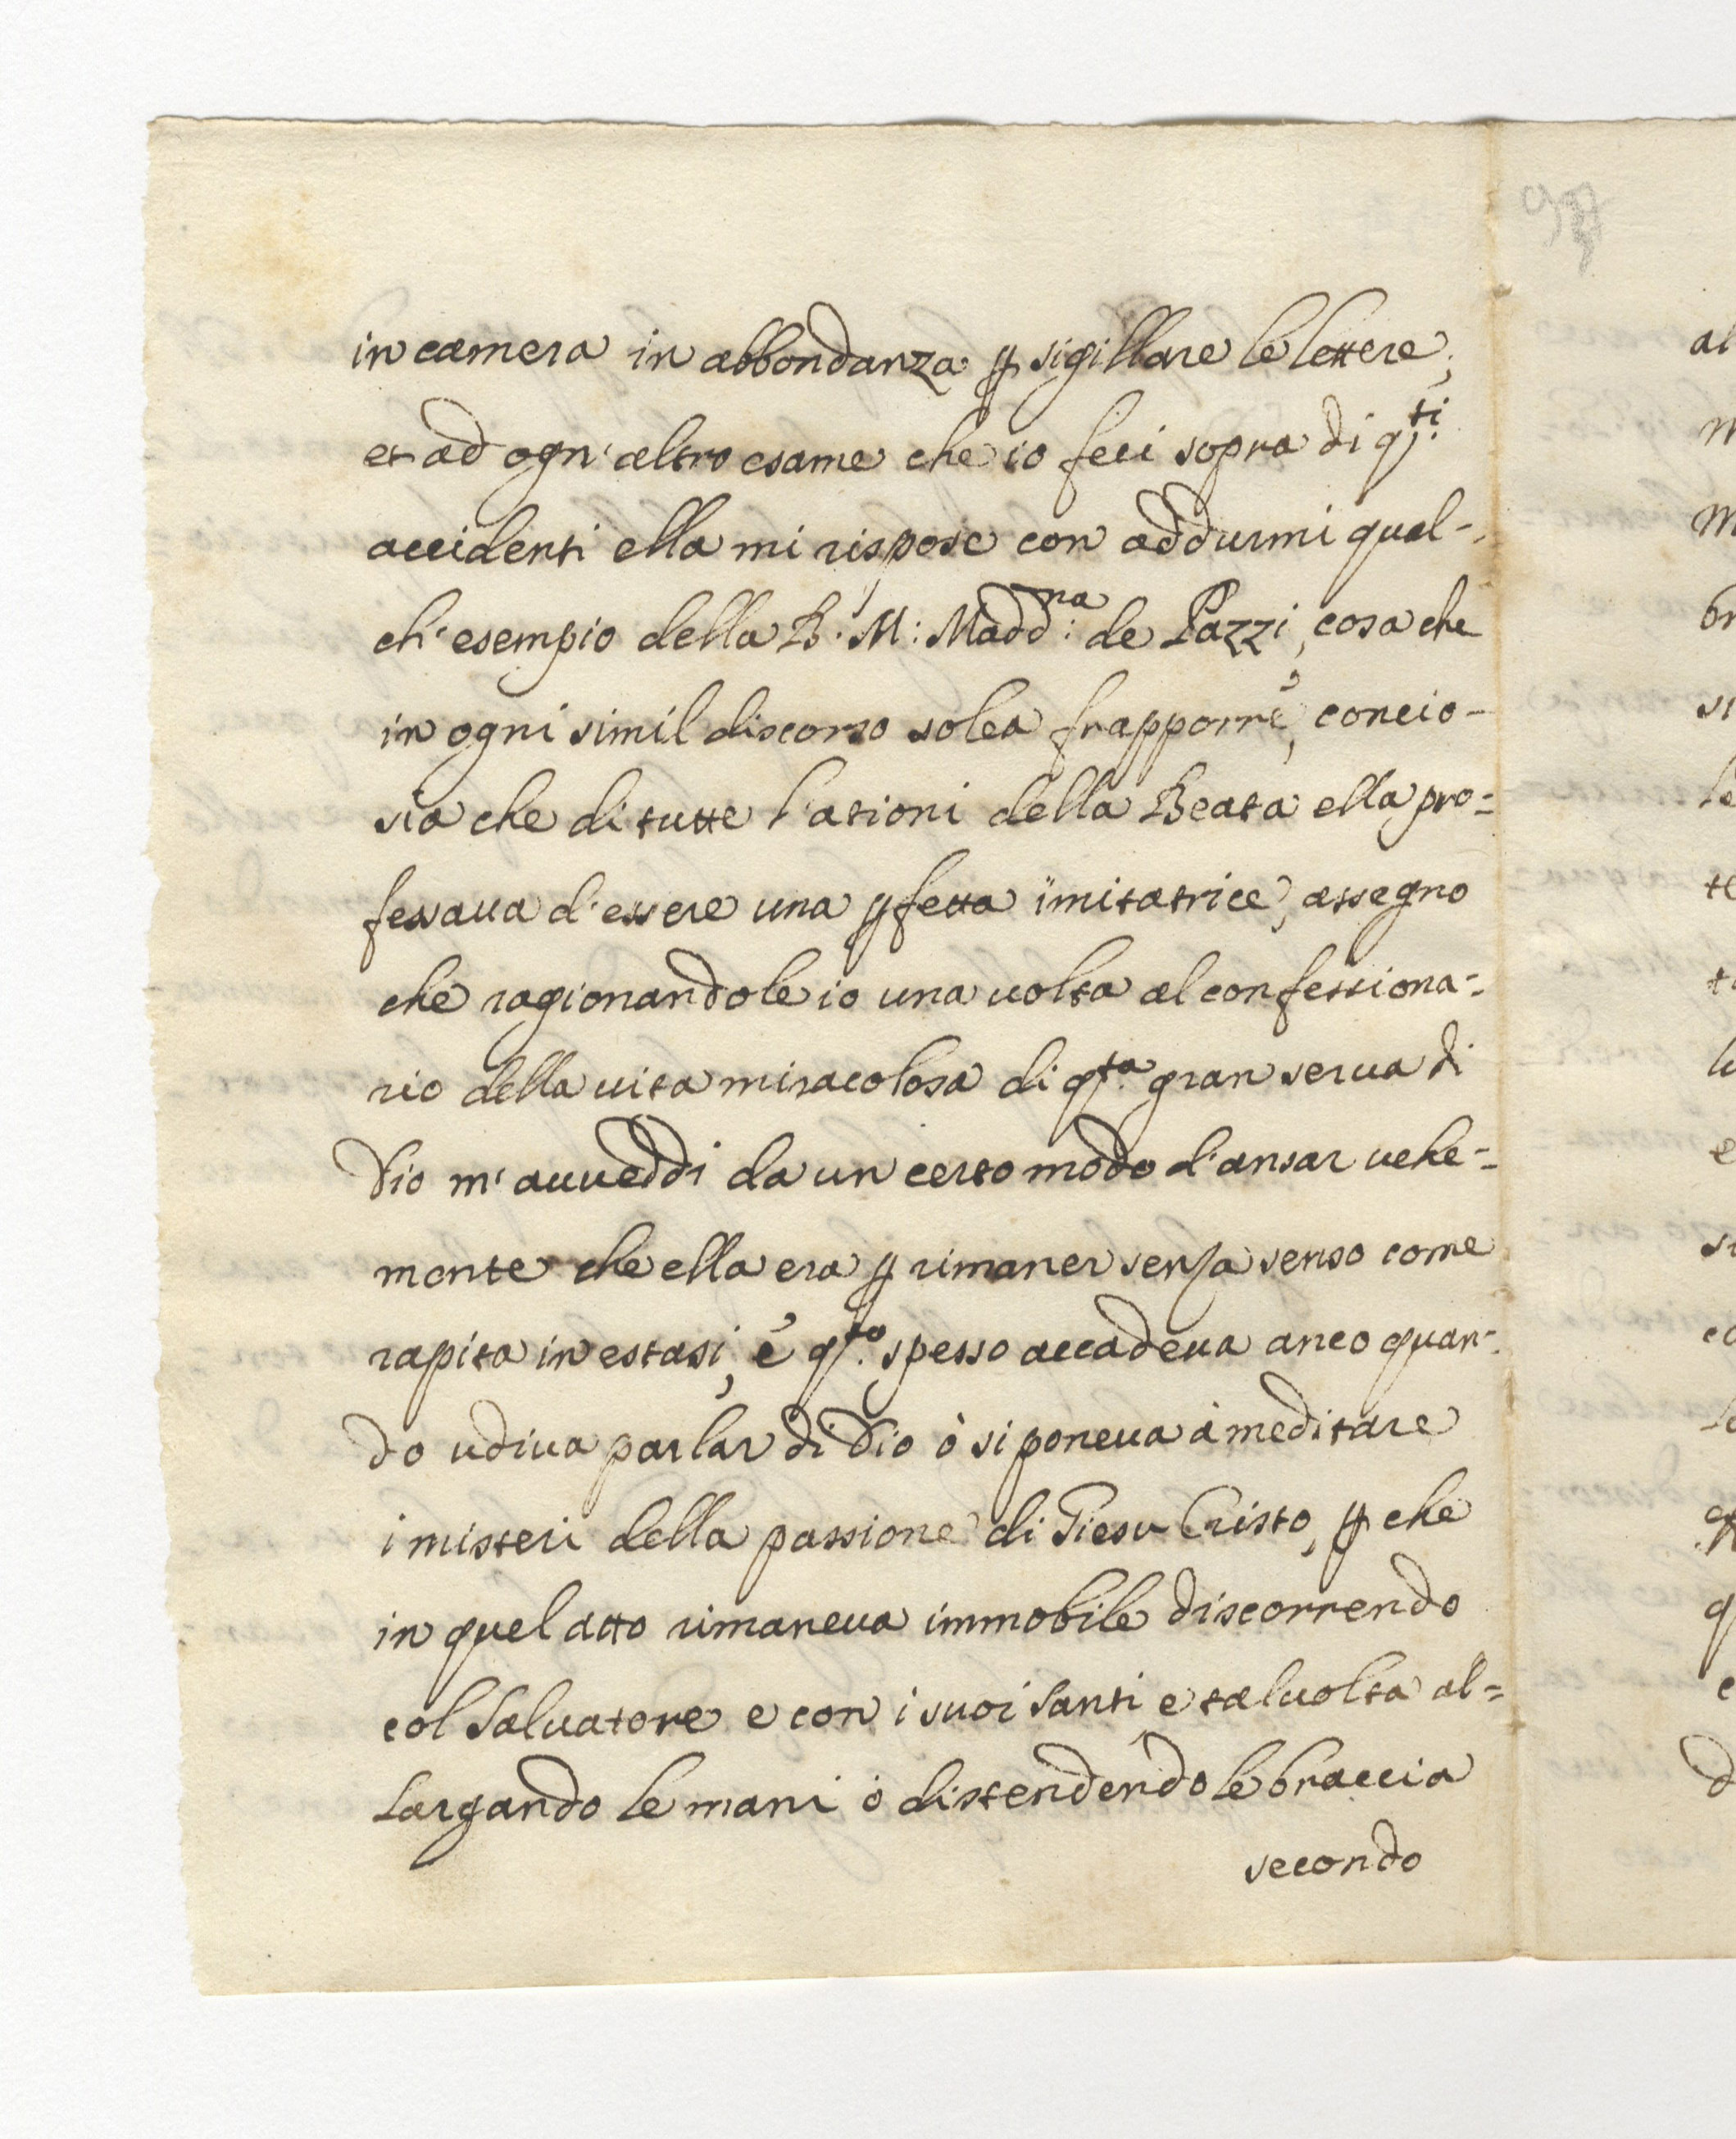 in camera in abbondanza ꝑ sigillare le lettere,
et ad ogn'altro esame che io feci sopra di q.ti
accidenti ella mi rispose con addurmi qual-
ch'esempio della B. M: Madd:na de Pazzi, cosa che
in ogni simil discorso solea frapporre, concio-
sia che di tutte l'ationi della Beata ella pro=
fessaua d'essere una ꝑfetta imitatrice, a ssegno
che ragionandole io una uolta al confessiona=
rio della uita miracolosa di q.ta gran serua di
Dio m'auueddi da un certo modo d'ansar uehe=
mente che ella era ꝑ rimaner senza senso come
rapita in estasi, è q.to spesso accadeua anco quan-
do udiua parlar di Dio ò si poneua à meditare
i misteri della passione di Giesu Cristo, ꝑ che
in quel atto rimaneua immobile discorrendo
col Saluatore e con i suoi Santi e taluolta al=
largando le mani ò distendendo le braccia
secondo